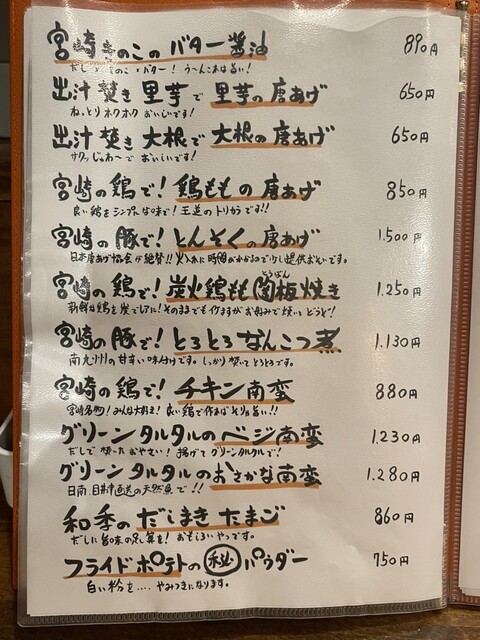 宮崎きのこのバター醤油 890円
だしときのことバター！う〜んこれは旨い！
出汁焚き里芋で里芋の唐あげ 650円
ねっとりホクホクおいしいです！
出汁焚き大根で大根の唐あげ 650円
サクッじゅわ〜でおいしいです！
宮崎の鶏で！鶏ももの唐あげ 850円
良い鶏をシンプルな味で！王道のトリからです！！
宮崎の豚で！とんそくの唐あげ 1.500円
日本唐あげ協会が絶賛！！火入れに時間がかかるので少し提供おそいです。
宮崎の鶏で！炭火鶏もも陶板焼き 1.250円
とうばん
新鮮な鶏を炭でレアに！そのままでも作りますがお好みで焼いてどうぞ！
宮崎の豚で！とろとろなんこつ煮 1.130円
南九州の甘辛い味付けです。しっかり焚いてとろとろです。
宮崎の鶏で！チキン南蛮 880円
宮崎名物！みんな大好き！良い鶏で作ればそりゃ旨い！！
グリーンタルタルのベジ南蛮 1.230円
だしで焚いたおやさい！揚げてグリーンタルタルで！
グリーンタルタルのおさかな南蛮 1.280円
日南、目井津直送の天然魚で！！
和季のだしまきたまご 860円
だしに旨味の足し算を！おもしろいやつです。
フライドポテトの㊙パウダー 750円
白い粉を....やみつきになります。